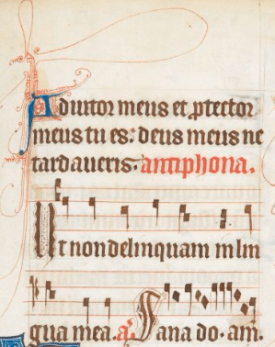 Adiutor meus et ꝓtector
meus tu es: deus meus ne
tardaueris. antiphona.
Ut non delinquam in lin
gua mea. a̅. Sana do. am.